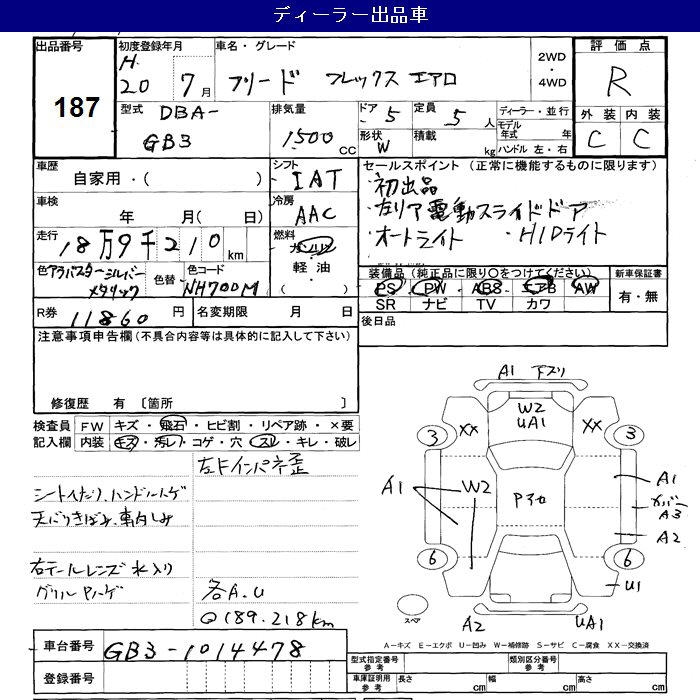 ディーラー出品車
出品番号
187
初度登録年月
H.
20 7月
車名・グレード
フリード フレックス エアロ
2WD
・
4WD
評価点
R
外装 内装
C C
型式 DBA-
GB3
排気量
1500 CC
ドア 5
形状 W
定員 5人
積載 kg
ディーラー・並行
モデル年式 年
ハンドル 左・右
車歴
自家用・( )
車検
年 月( 日)
走行
18万9千210km
色 アラバスターシルバーメタリック
色替
色コード
NH700M
シフト
IAT
冷房
AAC
燃料
ガソリン
軽油
・( )
セールスポイント (正常に機能するものに限ります)
・初出品
・左リア電動スライドドア
・オートライト ・HIDライト
装備品(純正品に限り○をつけてください)
PS PW ABS エアB AW
SR ナビ TV カワ
新車保証書
有・無
R券 11860円
名変期限 月 日
後日品
注意事項申告欄(不具合内容等は具体的に記入して下さい)
修復歴 有 〔箇所 〕
検査員記入欄
FW キズ・飛石・ヒビ割・リペア跡・×要
内装 キズ・汚レ・コゲ・穴・スレ・キレ・破レ
左Fインパネ歪
シートヘタリ、ハンドルハゲ
天バリきばみ、車内しみ
右テールレンズ水入り
グリルPハゲ
各A.U
◎189.218km
A1 下スリ
W2
UA1
XX XX
3 3
A1
W2
Pイロ
A1
カバー
A3
A2
6 6
U1
スペア
A2 UA1
A-キズ E-エクボ U-凹み W-補修跡 S-サビ C-腐食 XX-交換済
車台番号 GB3-1014478
登録番号
型式指定番号 参考
類別区分番号 参考
車庫証明用 参考 長さ cm 幅 cm 高さ cm